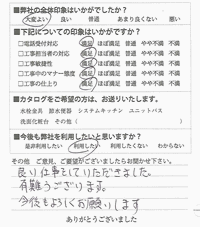 ■弊社の全体印象はいかがでしたか？
大変よい 良い 普通 あまり良くない 悪い
■下記についての印象はいかがですか？
□電話受付対応 満足 ほぼ満足 普通 やや不満 不満
□工事担当者の対応 満足 ほぼ満足 普通 やや不満 不満
□工事敏速性 満足 ほぼ満足 普通 やや不満 不満
□工事中のマナー態度 満足 ほぼ満足 普通 やや不満 不満
□工事の仕上り 満足 ほぼ満足 普通 やや不満 不満
■カタログをご希望の方は、お送りいたします。
水栓金具 節水便器 システムキッチン ユニットバス
洗面化粧台 その他（
■今後も弊社を利用したいと思いますか？
是非利用したい 利用したい 利用したくない わからない
その他 ご意見、ご要望がございましたらお聞かせ下さい。
良い仕事をしていただきました。
有難うございます。
今後もよろしくお願いします
ありがとうございました